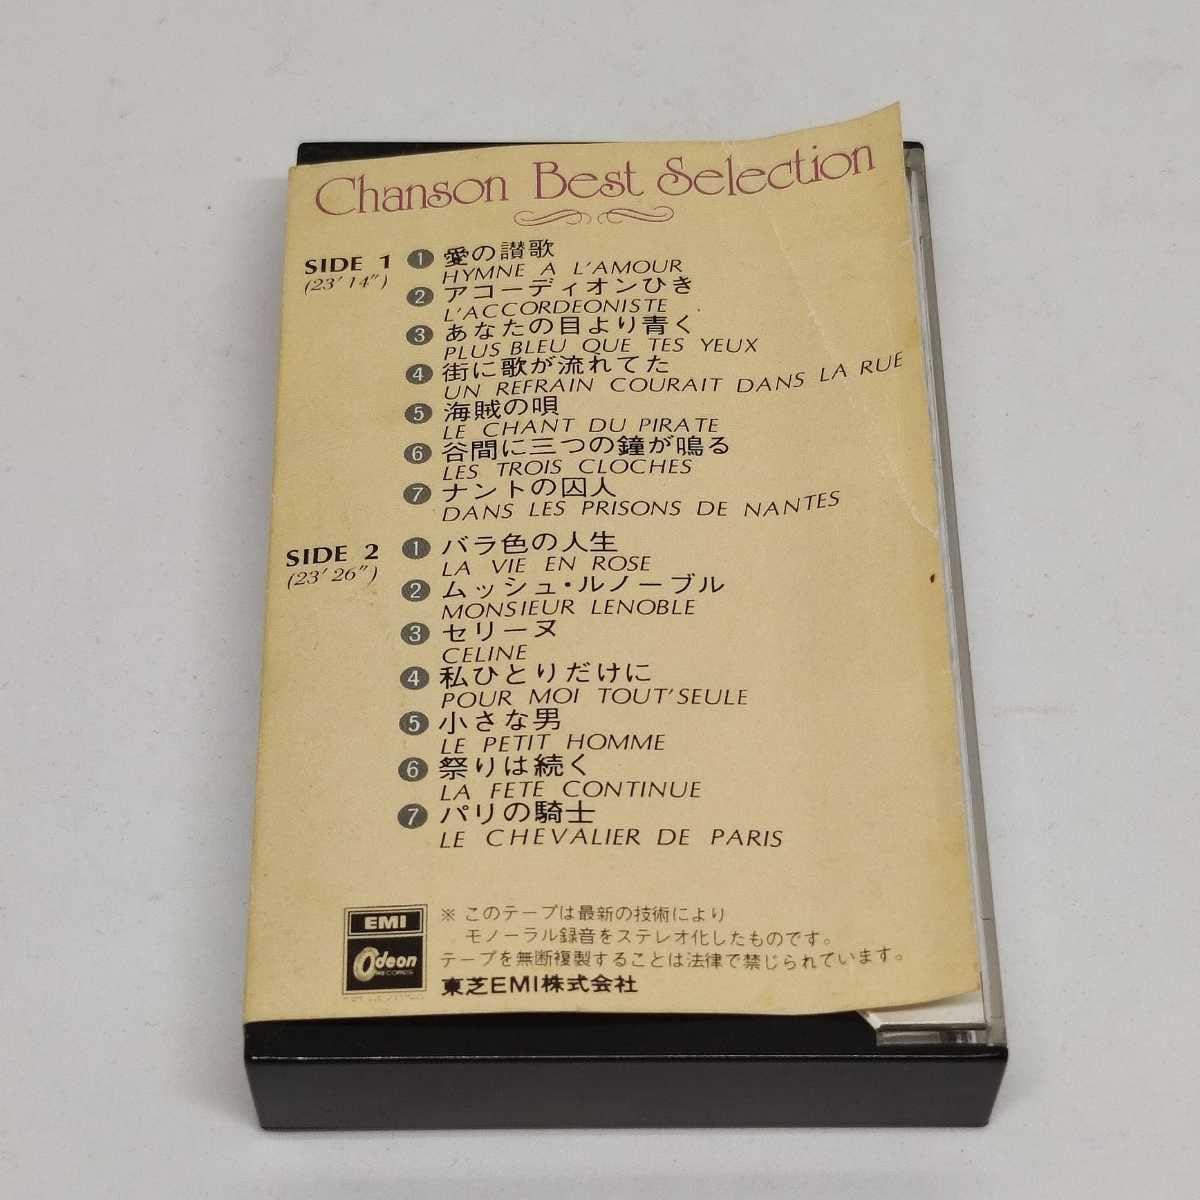 Chanson Best Selection
SIDE 1
(23′14″)
1 愛の讃歌
HYMNE A L'AMOUR
2 アコーディオンひき
L'ACCORDEONISTE
3 あなたの目より青く
PLUS BLEU QUE TES YEUX
4 街に歌が流れてた
UN REFRAIN COURAIT DANS LA RUE
5 海賊の唄
LE CHANT DU PIRATE
6 谷間に三つの鐘が鳴る
LES TROIS CLOCHES
7 ナントの囚人
DANS LES PRISONS DE NANTES
SIDE 2
(23′26″)
1 バラ色の人生
LA VIE EN ROSE
2 ムッシュ・ルノーブル
MONSIEUR LENOBLE
3 セリーヌ
CELINE
4 私ひとりだけに
POUR MOI TOUT'SEULE
5 小さな男
LE PETIT HOMME
6 祭りは続く
LA FETE CONTINUE
7 パリの騎士
LE CHEVALIER DE PARIS
EMI
Odeon
RECORDS
※ このテープは最新の技術により
モノーラル録音をステレオ化したものです。
テープを無断複製することは法律で禁じられています。
東芝EMI株式会社